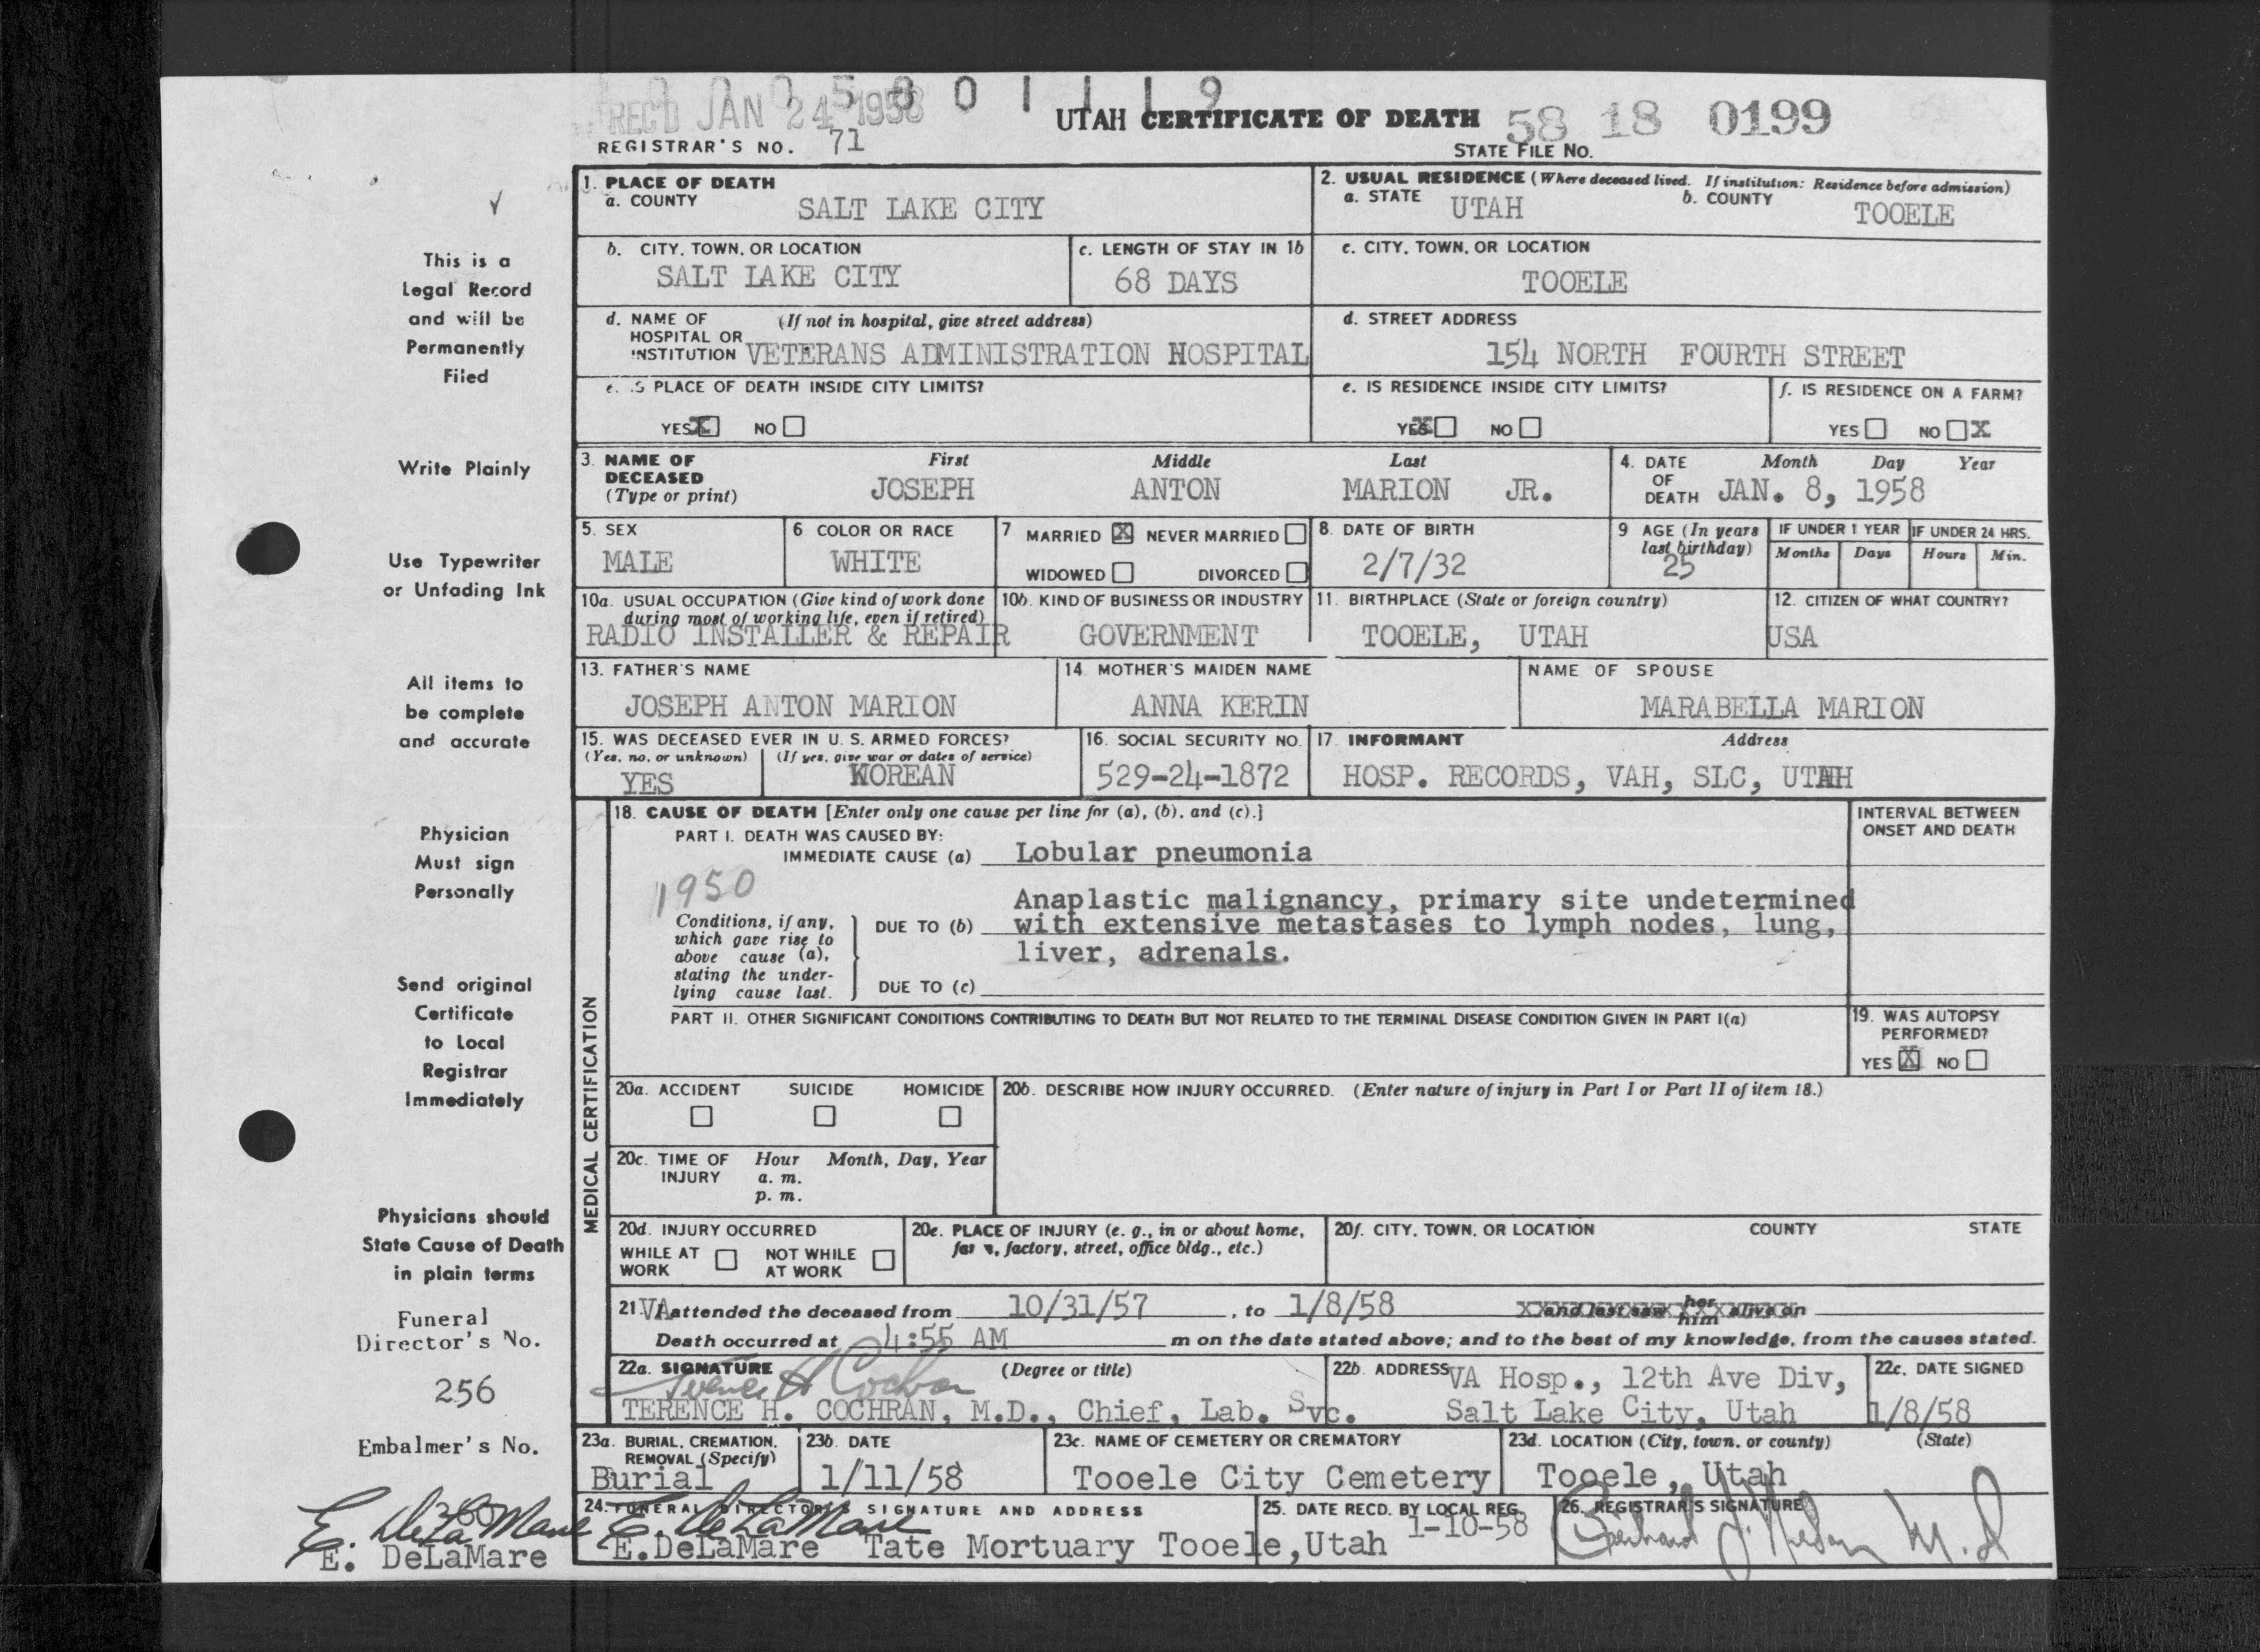 0 0 0 5 8 0 1 1 1 9
REC'D JAN 24 1958
UTAH CERTIFICATE OF DEATH 58 18 0199
REGISTRAR'S NO. 71
STATE FILE NO.
This is a
Legal Record
and will be
Permanently
Filed
Write Plainly
Use Typewriter
or Unfading Ink
All items to
be complete
and accurate
Physician
Must sign
Personally
Send original
Certificate
to Local
Registrar
Immediately
Physicians should
State Cause of Death
in plain terms
Funeral
Director's No.
256
Embalmer's No.
360
E. DeLaMare
E. DeLaMare
1. PLACE OF DEATH
a. COUNTY SALT LAKE CITY
2. USUAL RESIDENCE (Where deceased lived. If institution: Residence before admission)
a. STATE UTAH b. COUNTY TOOELE
b. CITY, TOWN, OR LOCATION SALT LAKE CITY
c. LENGTH OF STAY IN 1b 68 DAYS
c. CITY, TOWN, OR LOCATION TOOELE
d. NAME OF (If not in hospital, give street address)
HOSPITAL OR
INSTITUTION VETERANS ADMINISTRATION HOSPITAL
d. STREET ADDRESS
154 NORTH FOURTH STREET
e. IS PLACE OF DEATH INSIDE CITY LIMITS?
YES X NO
e. IS RESIDENCE INSIDE CITY LIMITS?
YES X NO
f. IS RESIDENCE ON A FARM?
YES NO X
3. NAME OF DECEASED (Type or print)
First Middle Last
JOSEPH ANTON MARION JR.
4. DATE OF DEATH Month Day Year
JAN. 8, 1958
5. SEX
MALE
6 COLOR OR RACE
WHITE
7 MARRIED X NEVER MARRIED
WIDOWED DIVORCED
8. DATE OF BIRTH
2/7/32
9 AGE (In years last birthday)
25
IF UNDER 1 YEAR
Months Days
IF UNDER 24 HRS.
Hours Min.
10a. USUAL OCCUPATION (Give kind of work done
during most of working life, even if retired)
RADIO INSTALLER & REPAIR
10b. KIND OF BUSINESS OR INDUSTRY
GOVERNMENT
11. BIRTHPLACE (State or foreign country)
TOOELE, UTAH
12. CITIZEN OF WHAT COUNTRY?
USA
13. FATHER'S NAME
JOSEPH ANTON MARION
14. MOTHER'S MAIDEN NAME
ANNA KERIN
NAME OF SPOUSE
MARABELLA MARION
15. WAS DECEASED EVER IN U. S. ARMED FORCES?
(Yes, no, or unknown) (If yes, give war or dates of service)
YES KOREAN
16. SOCIAL SECURITY NO.
529-24-1872
17. INFORMANT Address
HOSP. RECORDS, VAH, SLC, UTAH
MEDICAL CERTIFICATION
18. CAUSE OF DEATH [Enter only one cause per line for (a), (b), and (c).]
INTERVAL BETWEEN
ONSET AND DEATH
PART I. DEATH WAS CAUSED BY:
IMMEDIATE CAUSE (a) Lobular pneumonia
1950
Conditions, if any,
which gave rise to
above cause (a),
stating the under-
lying cause last.
Anaplastic malignancy, primary site undetermined
DUE TO (b) with extensive metastases to lymph nodes, lung,
liver, adrenals.
DUE TO (c)
PART II. OTHER SIGNIFICANT CONDITIONS CONTRIBUTING TO DEATH BUT NOT RELATED TO THE TERMINAL DISEASE CONDITION GIVEN IN PART I(a)
19. WAS AUTOPSY
PERFORMED?
YES X NO
20a. ACCIDENT SUICIDE HOMICIDE
20b. DESCRIBE HOW INJURY OCCURRED. (Enter nature of injury in Part I or Part II of item 18.)
20c. TIME OF INJURY Hour Month, Day, Year
a. m.
p. m.
20d. INJURY OCCURRED
WHILE AT WORK NOT WHILE AT WORK
20e. PLACE OF INJURY (e. g., in or about home,
farm, factory, street, office bldg., etc.)
20f. CITY, TOWN, OR LOCATION COUNTY STATE
21. VA attended the deceased from 10/31/57, to 1/8/58 and last saw her him alive on
Death occurred at 4:55 AM m on the date stated above; and to the best of my knowledge, from the causes stated.
22a. SIGNATURE (Degree or title)
Terence H Cochran
TERENCE H. COCHRAN, M.D., Chief, Lab. Svc.
22b. ADDRESS VA Hosp., 12th Ave Div,
Salt Lake City, Utah
22c. DATE SIGNED
1/8/58
23a. BURIAL, CREMATION,
REMOVAL (Specify)
Burial
23b. DATE
1/11/58
23c. NAME OF CEMETERY OR CREMATORY
Tooele City Cemetery
23d. LOCATION (City, town, or county) (State)
Tooele, Utah
24. FUNERAL DIRECTOR'S SIGNATURE AND ADDRESS
E. DeLaMare
E.DeLaMare Tate Mortuary Tooele,Utah
25. DATE RECD. BY LOCAL REG.
1-10-58
26. REGISTRAR'S SIGNATURE
M.D